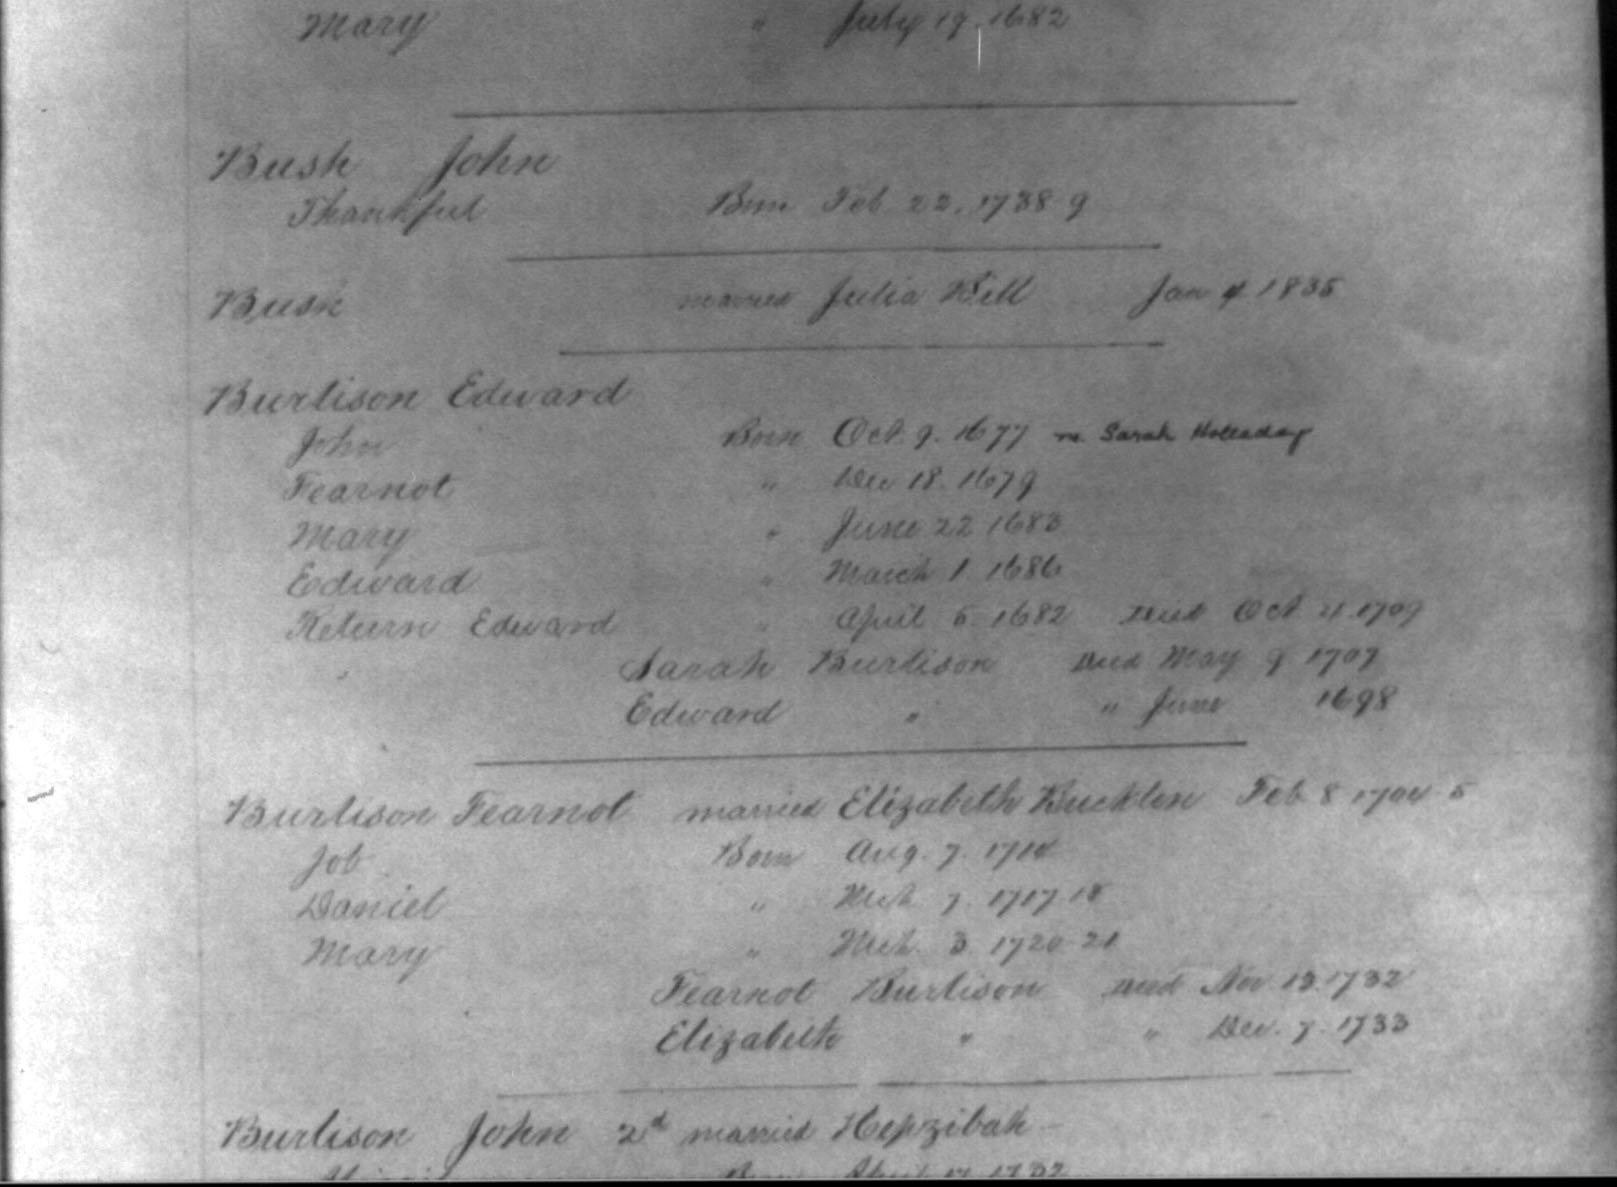 Mary " July 19. 1682
Bush John
Thankful Born Feb 22. 1738 9
Bush married Julia Bill Jan 4 1835
Burlison Edward
John Born Oct. 9. 1677 m. Sarah Holladay
Fearnot " Dec 18. 1679
Mary " June 22 1683
Edward " March 1 1686
Return Edward " April 5 1682 Died Oct 21. 1709
Sarah Burlison Died May 9 1707
Edward " " June 1698
Burlison Fearnot married Elizabeth Bucklen Feb 8 1704 5
Job Born Aug. 7. 1714
Daniel " Mch. 7. 1717 18
Mary " Mch. 3. 1720 21
Fearnot Burlison Died Nov 13. 1732
Elizabeth " " Dec. 7. 1733
Burlison John 2d married Hepzibah
Born April 17 1732